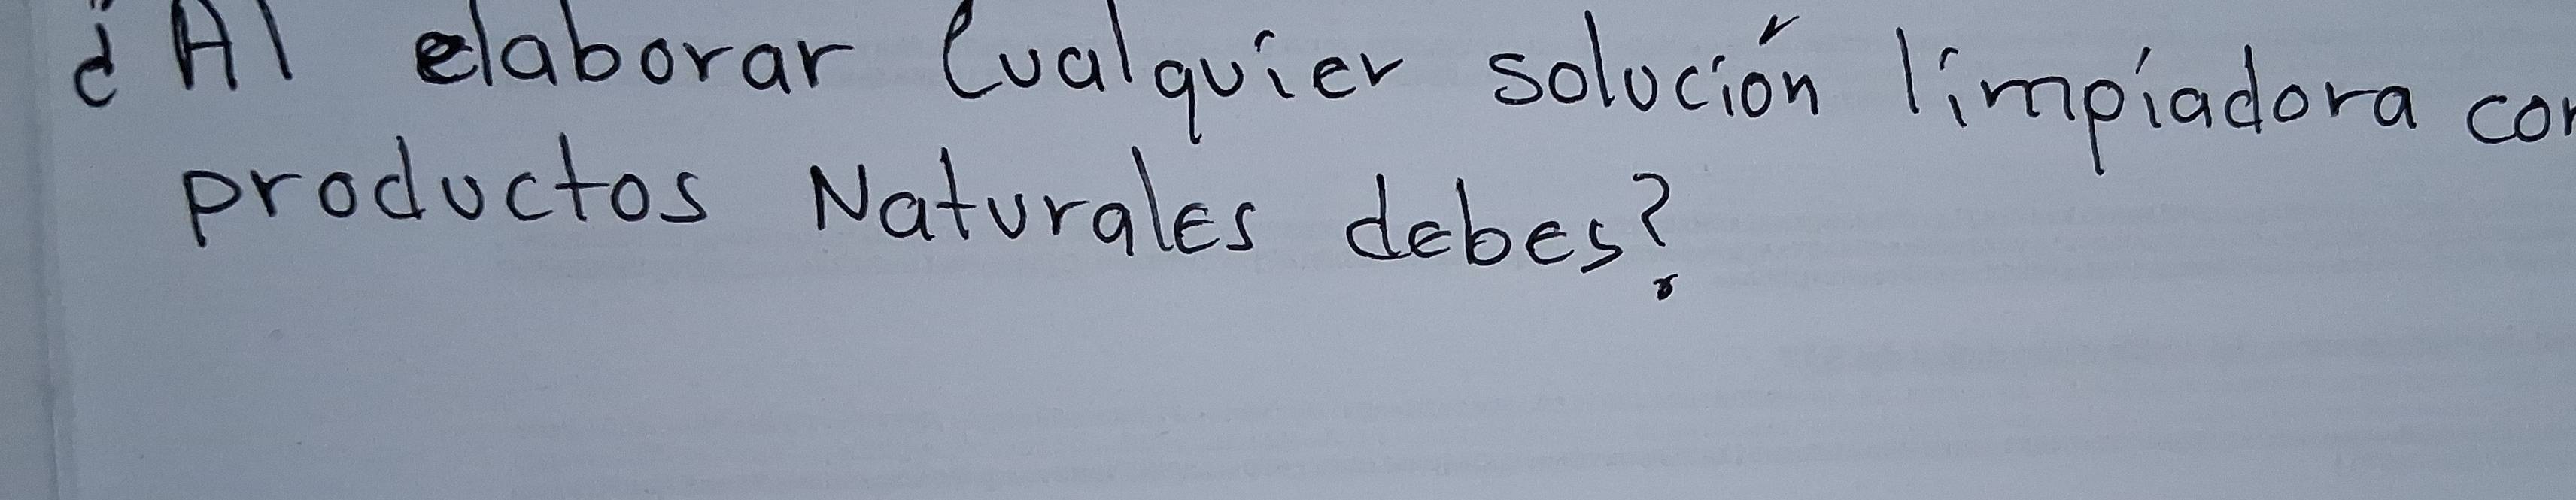 ¿Al elaborar Cualquier solución limpiadora con
productos Naturales debes?